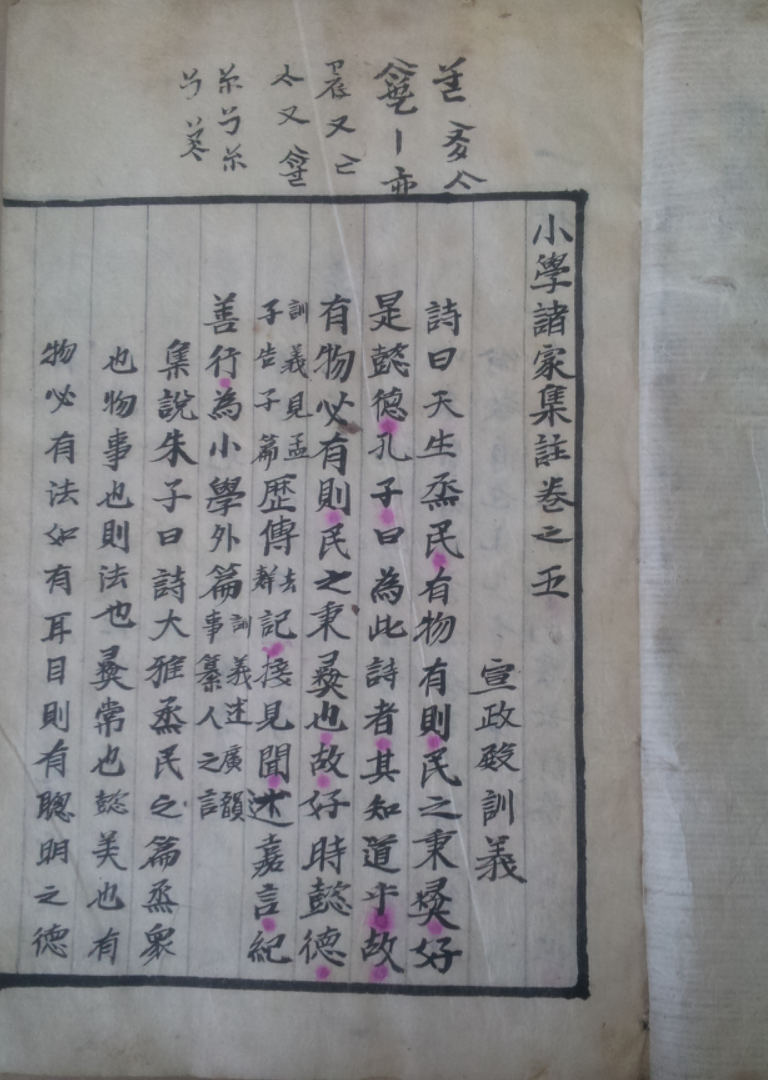 小學諸家集註卷之五
宣政殿訓義
詩曰天生烝民有物有則民之秉彛好
是懿德孔子曰為此詩者其知道乎故
有物必有則民之秉彛也故好時懿德
訓義見孟
子告子篇
歷傳
去
群
記接見聞述嘉言紀
善行為小學外篇
訓義述廣韻
事纂人之言
集說朱子曰詩大雅烝民之篇烝衆
也物事也則法也彛常也懿美也有
物必有法如有耳目則有聰明之德